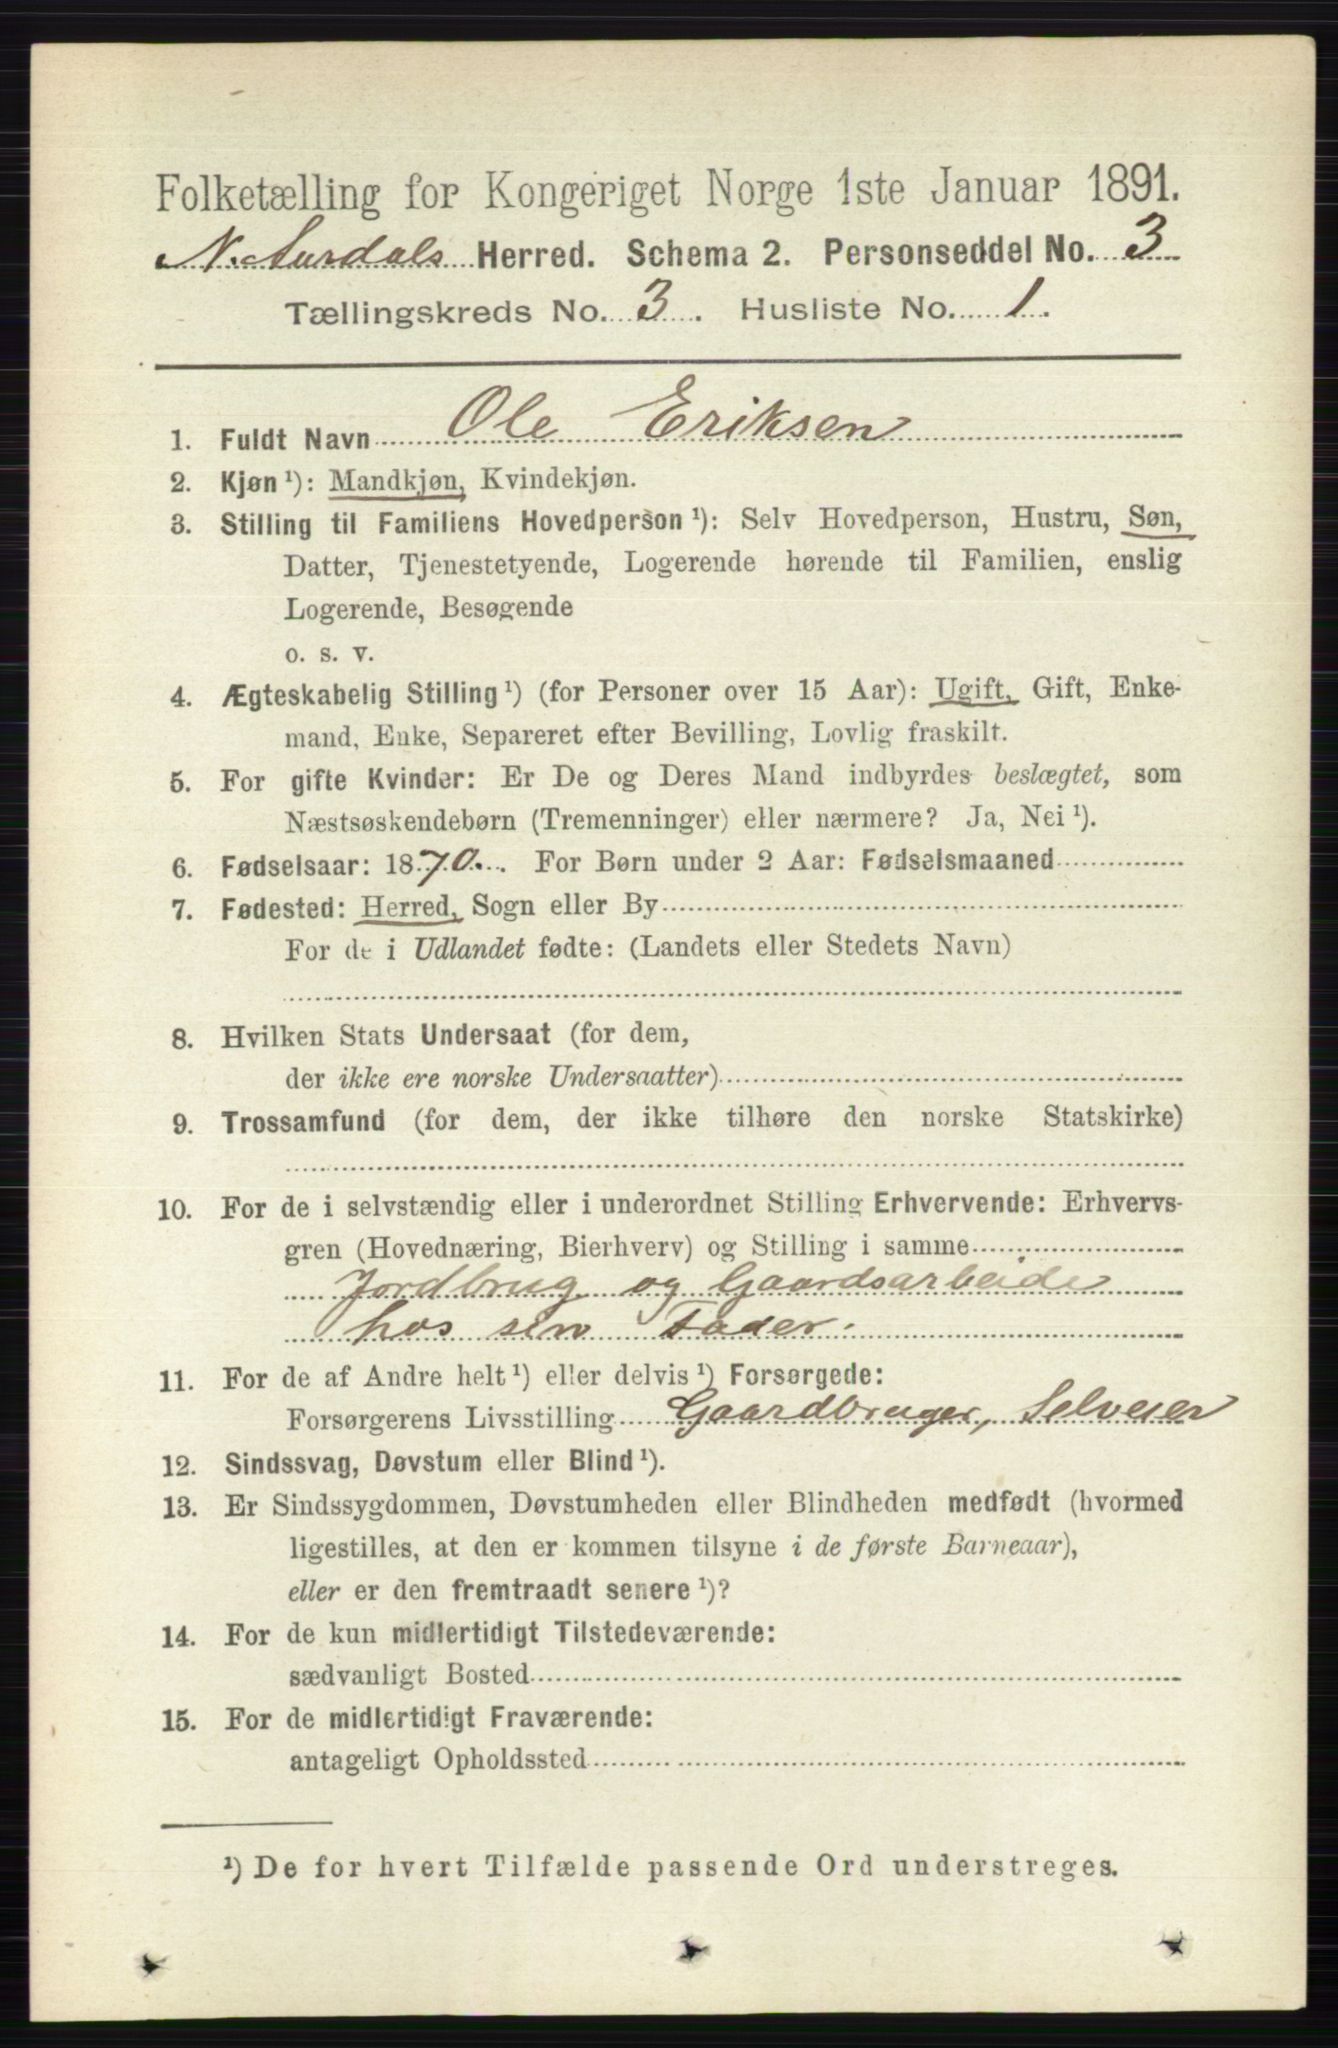 Folketælling for Kongeriget Norge 1ste Januar 1891.
N. Aurdals Herred. Schema 2. Personseddel No. 3
Tællingskreds No. 3. Husliste No. 1.
1. Fuldt Navn Ole Eriksen
2. Kjøn¹): Mandkjøn, Kvindekjøn.
3. Stilling til Familiens Hovedperson¹): Selv Hovedperson, Hustru, Søn,
Datter, Tjenestetyende, Logerende hørende til Familien, enslig
Logerende, Besøgende
o. s. v.
4. Ægteskabelig Stilling¹) (for Personer over 15 Aar): Ugift, Gift, Enke-
mand, Enke, Separeret efter Bevilling, Lovlig fraskilt.
5. For gifte Kvinder: Er De og Deres Mand indbyrdes beslægtet, som
Næstsøskendebørn (Tremenninger) eller nærmere? Ja, Nei¹).
6. Fødselsaar: 1870. For Børn under 2 Aar: Fødselsmaaned
7. Fødested: Herred, Sogn eller By
For de i Udlandet fødte: (Landets eller Stedets Navn)
8. Hvilken Stats Undersaat (for dem,
der ikke ere norske Undersaatter)
9. Trossamfund (for dem, der ikke tilhøre den norske Statskirke)
10. For de i selvstændig eller i underordnet Stilling Erhvervende: Erhvervs-
gren (Hovednæring, Bierhverv) og Stilling i samme
Jordbrug og Gaardsarbeide
hos sin Fader.
11. For de af Andre helt¹) eller delvis¹) Forsørgede:
Forsørgerens Livsstilling Gaardbruger, Selveier
12. Sindssvag, Døvstum eller Blind¹).
13. Er Sindssygdommen, Døvstumheden eller Blindheden medfødt (hvormed
ligestilles, at den er kommen tilsyne i de første Barneaar),
eller er den fremtraadt senere¹)?
14. For de kun midlertidigt Tilstedeværende:
sædvanligt Bosted
15. For de midlertidigt Fraværende:
antageligt Opholdssted
¹) De for hvert Tilfælde passende Ord understreges.